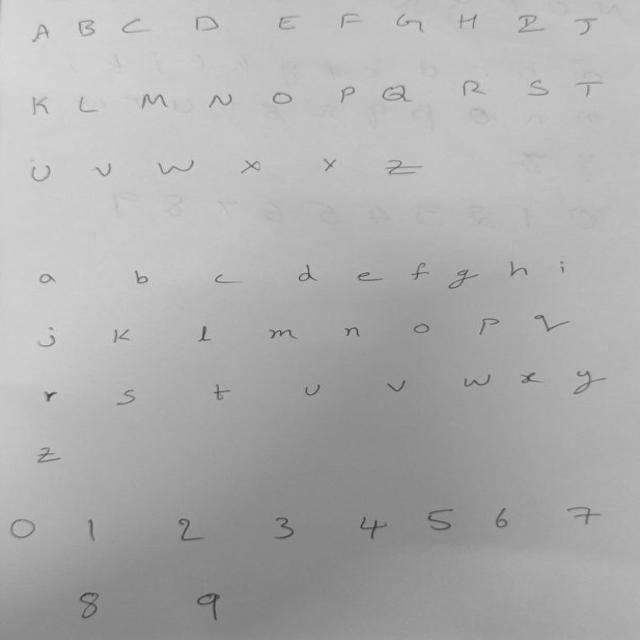 A B C D E F G H I J
K L M N O P Q R S T
U V W X Y Z
a b c d e f g h i
j k l m n o p q
r s t u v w x y
z
0 1 2 3 4 5 6 7
8 9